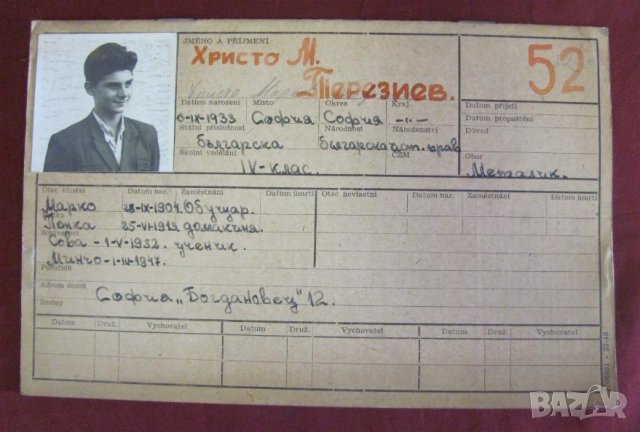 JMÉNO A PŘÍJMENÍ
Христо М.
Терезиев.
52
Datum narození Místo Okres Kraj
6-IX-1933 София София -"-
Státní příslušnost Národnost Náboženství
българска българска прав
Školní vzdělání ČZM
IV-клас.
Datum přijetí
Datum propuštění
Důvod
Obor
Металик.
Otec vlastní Datum nar. Zaměstnání Datum úmrtí Otec nevlastní Datum nar. Zaměstnání Datum úmrtí
Марко 28-IX-1904. Обущар.
Пенка 25-VI-1913. домакиня.
Sourozenci
Сова - 1-V-1932. ученик.
Минчо - 1-III-1947.
Poručník
Adresa domů
София „Богдановец" 12.
Změny
Datum Druž. Vychovatel Datum Druž. Vychovatel Datum Druž. Vychovatel
BAZAR